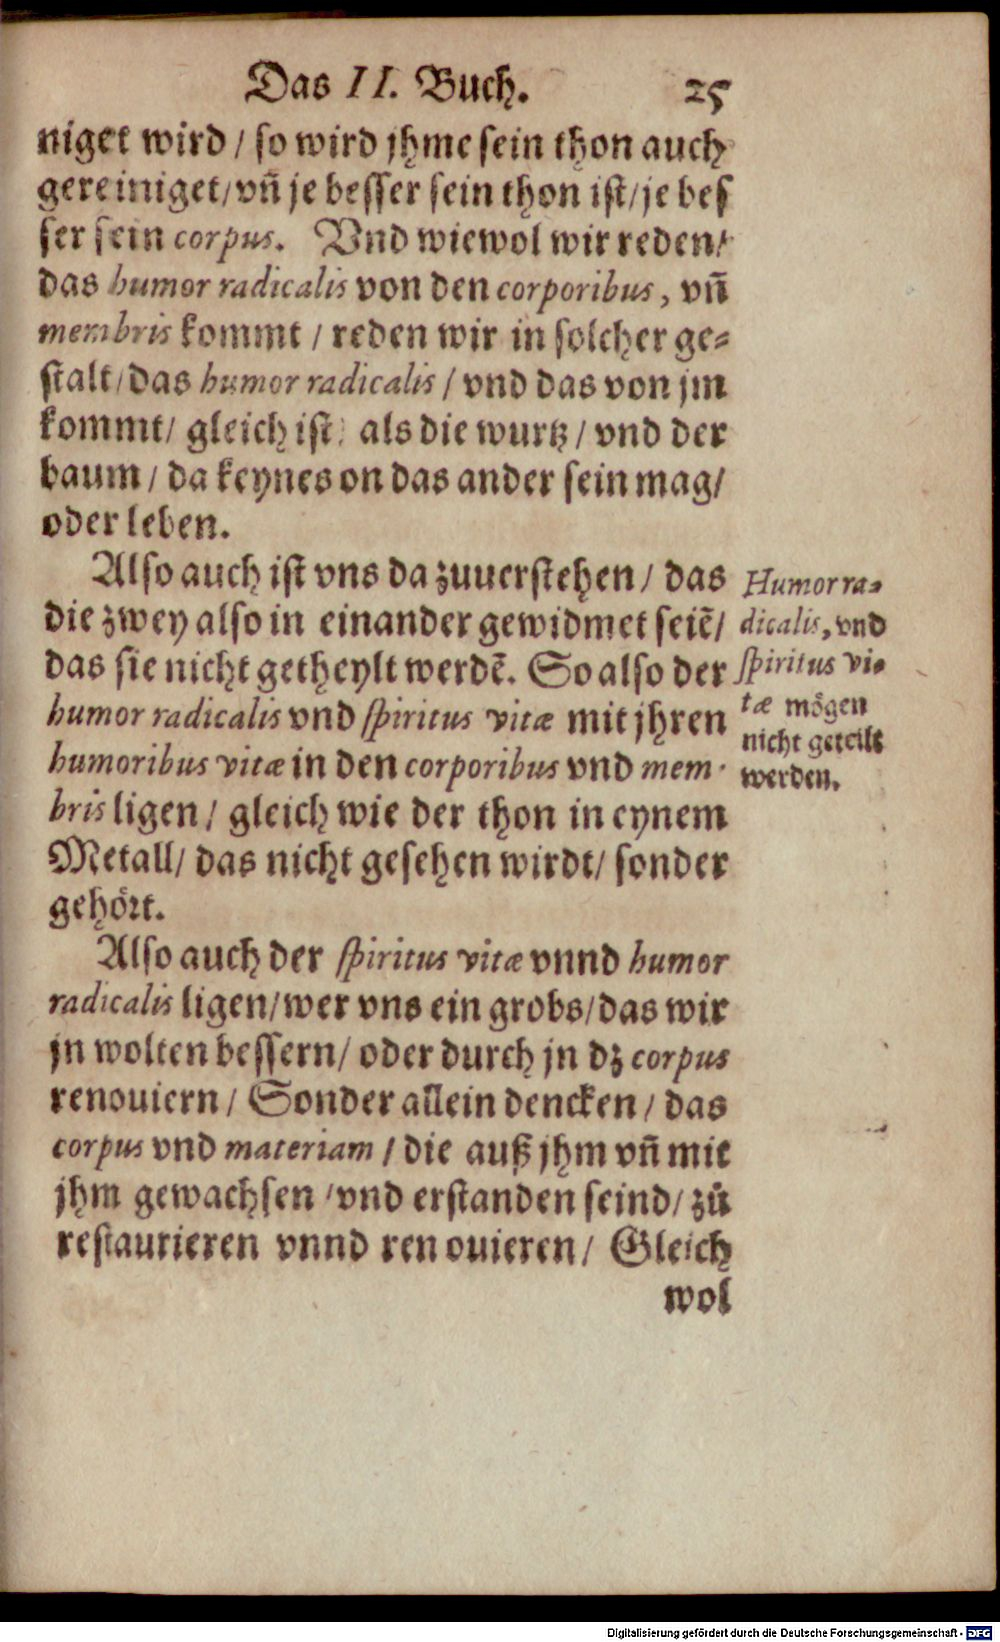 Das II. Buch. 25
niget wird / so wird jhme sein thon auch
gereiniget / vñ je besser sein thon ist / je bes
ser sein corpus. Vnd wiewol wir reden /
das humor radicalis von den corporibus, vñ
membris kommt / reden wir in solcher ge-
stalt / das humor radicalis / vnd das von jm
kommt / gleich ist / als die wurtz / vnd der
baum / da keynes on das ander sein mag /
oder leben.
Also auch ist vns da zuuerstehen / das
die zwey also in einander gewidmet seiẽ /
das sie nicht getheylt werdẽ. So also der
humor radicalis vnd spiritus vitæ mit jhren
humoribus vitæ in den corporibus vnd mem-
bris ligen / gleich wie der thon in eynem
Metall / das nicht gesehen wirdt / sonder
gehört.
Humor ra-
dicalis, vnd
spiritus vi-
tæ mögen
nicht geteilt
werden.
Also auch der spiritus vitæ vnnd humor
radicalis ligen / wer vns ein grobs / das wir
jn wolten bessern / oder durch jn dz corpus
renouiern / Sonder allein dencken / das
corpus vnd materiam / die auß jhm vñ mit
jhm gewachsen / vnd erstanden seind / zů
restaurieren vnnd renouieren / Gleich
wol
Digitalisierung gefördert durch die Deutsche Forschungsgemeinschaft - DFG